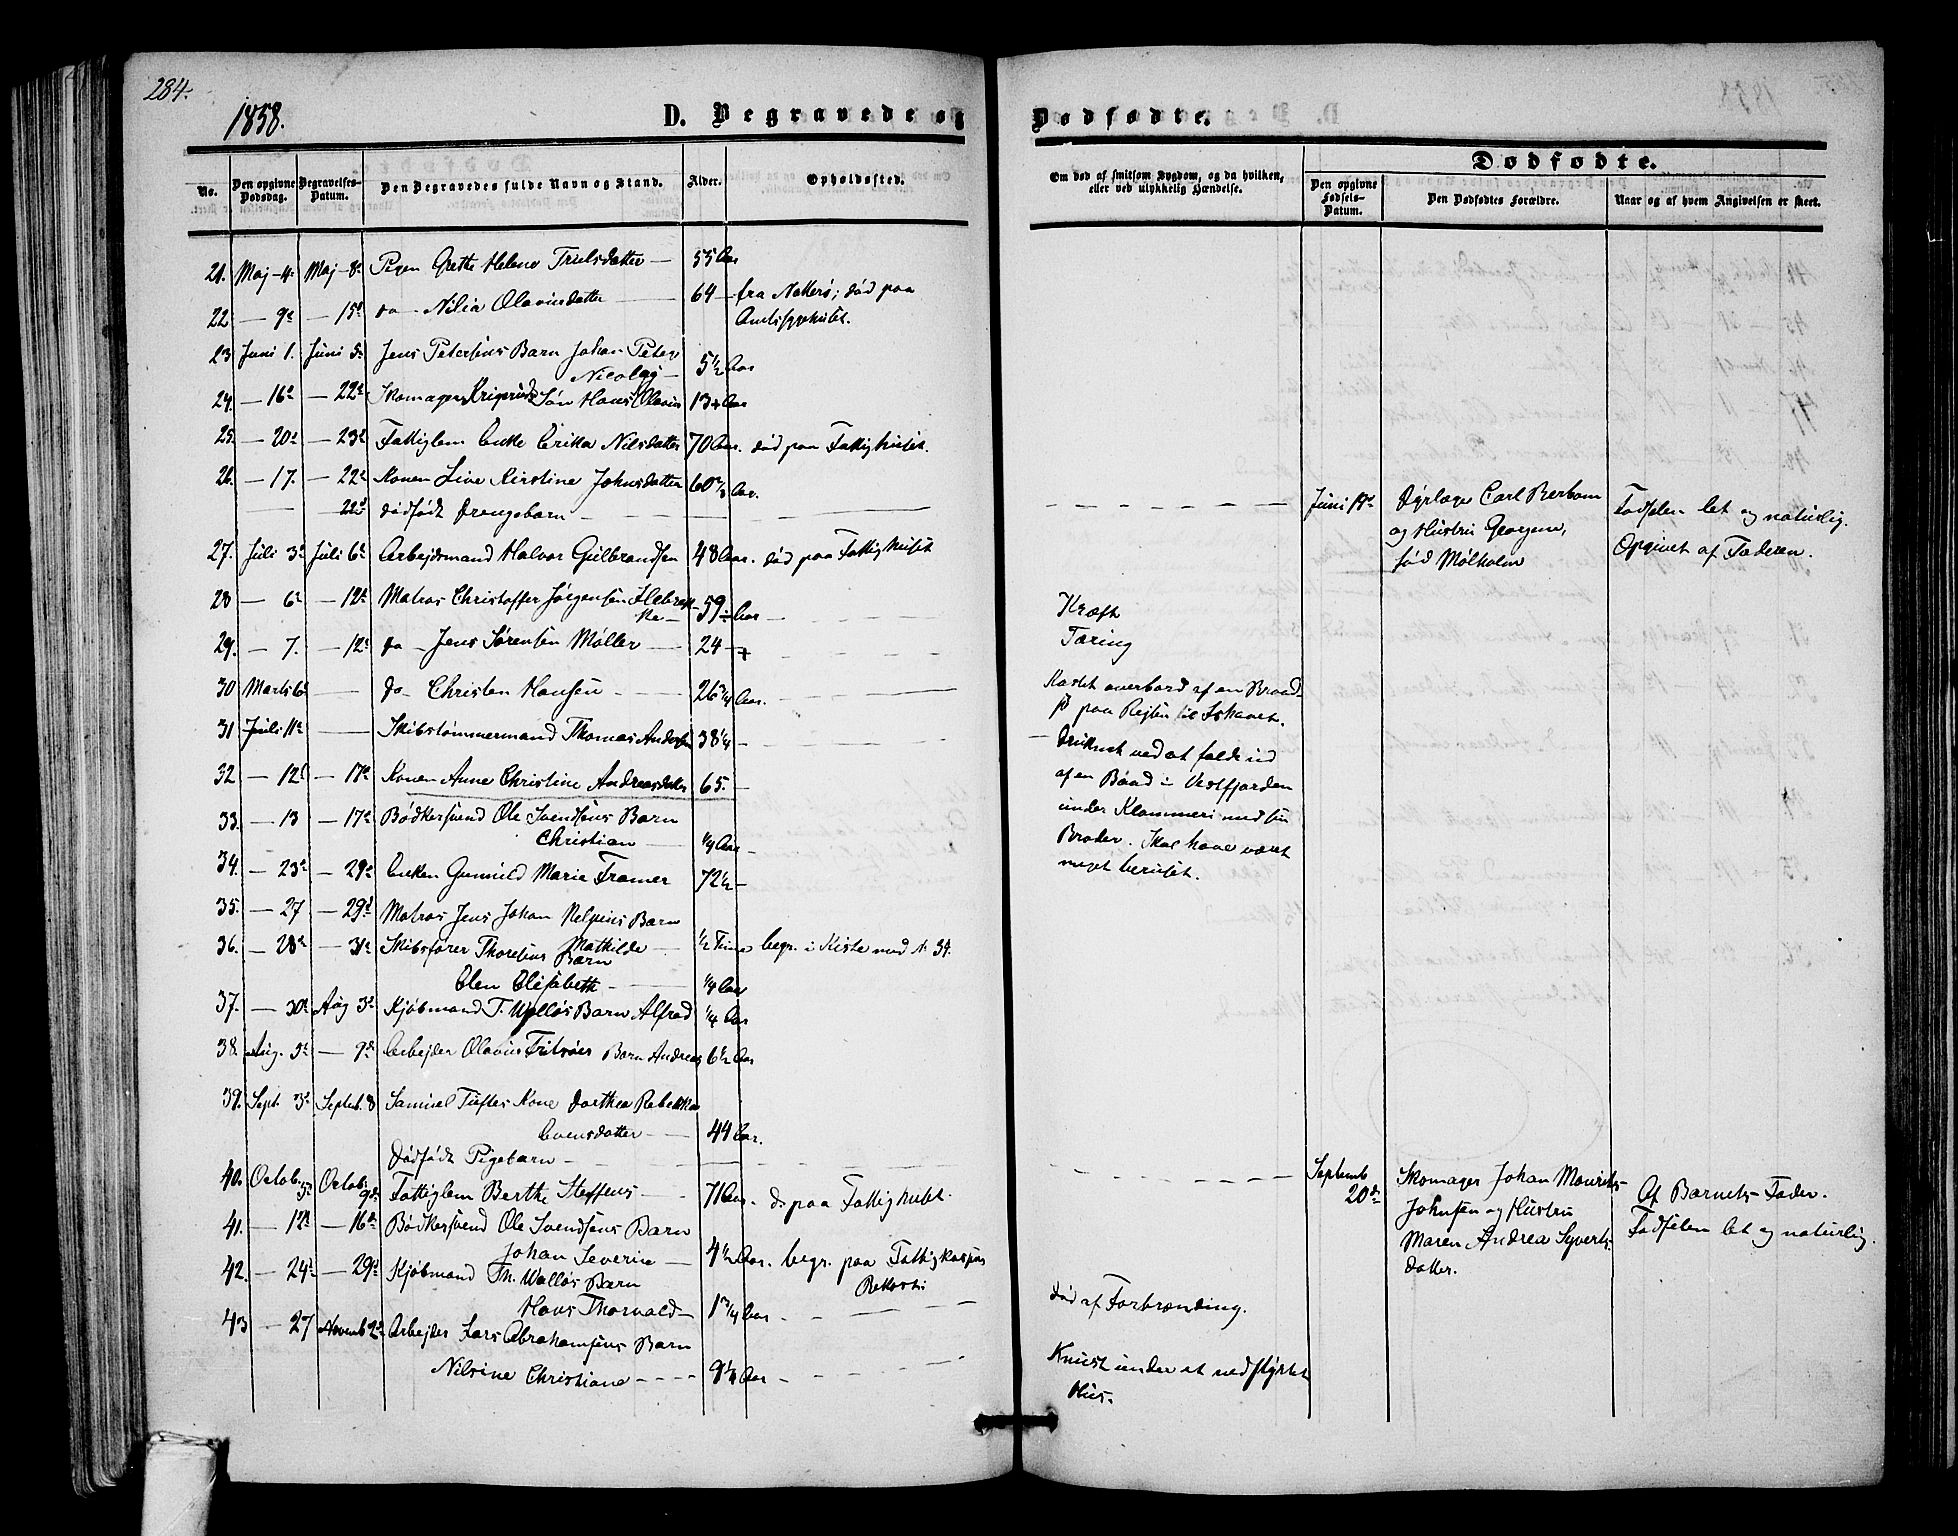 284.
1858.
D. Begravede og
Dødfødte.
Dødfødte.
No.
Den opgivne Dødsdag.
Begravelses-Datum.
Den Begravedes fulde Navn og Stand.
Alder.
Opholdssted.
Om død af smitsom Sygdom, og da hvilken,
eller ved ulykkelig Hændelse.
Den opgivne Fødsels-Datum.
Den Dødfødtes Forældre.
Naar og af hvem Angivelsen er skeet.
21. Maj 4. Maj 8d Pigen Grethe Helene Trulsdatter 55 Aar
22 — 9d — 15d do Nilia Olavusdatter 64 — fra Nøtterø; død paa
Amtssygehuset.
23 Juni 1. Juni 5d Jens Petersens Barn Johan Peter
Nicolay — 5½ Aar
24. — 16d — 22d Skomager Søn Hans Olavus 13 Aar
25. — 20d — 23d Fattiglem Enke Erikka Nilsdatter 70 Aar. død paa Fattighuset.
26. — 17. — 22d Konen Live Kirstine Johnsdatter 60 Aar.
— 22d dødfødt Drengebarn — Juni 17d Dyrlæge Carl Berbom
og Hustru Georgine,
fød Mølholm
Fødselen let og naturlig.
Opgivet af Faderen.
27. Juli 3d Juli 6d Arbejdsmand Halvor Gulbrandsen 48 Aar. død paa Fattighuset
28 — 6d — 12d Matros Christoffer Jørgensen 59 Aar — Kræft
29. — 7. — 12d do Jens Sørensen Møller 24 — Tæring
30 Marts 6d — do Christen Hansen 26¾ Aar. Kastet overbord af en Braad-
sø paa Rejsen til Ishavet.
31 Juli 11d — Skibstømmermand Thomas Andersen 38¼ — Druknet ved at falde ud
af en Baad i Vestfjorden
under Klammeri med sin
Broder. Skal have været
meget beruset.
32 — 12d — 17d Konen Anne Christine Andreasdatter 65.
33. — 13 — 17d Bødkersvend Ole Svendsens Barn
Christian — ¼ Aar
34. — 23d — 29d Enken Gunnild Marie Framer 72½ —
35. — 27 — 29d Matros Jens Johan Barn
Mathilde — ½ Time begr. i Kiste med N. 34.
36. — 28d — 31d Skibsfører Thoresens Barn
Elen Elisabeth — ¼ Aar
37. — 30d Aug 3d Kjøbmand T. Walløs Barn Alfred ¼ Aar
38. Aug. 5d — 9d Arbejder Olavus Fritsøes Barn Andreas 6½ Aar
39. Sept. 3d Septemb. 8 Samuel Tuftes Kone Dorthea Rebekka
Evensdatter — 44 Aar.
Dødfødt Pigebarn — Septemb
20d Skomager Johan Mouritz
Johnsen og Hustru
Maren Andrea Syverts-
datter.
Af Barnets Fader.
Fødselen let og naturlig.
40. Octob. 5d Octob. 9d Fattiglem Berthe Steffens — 71 Aar. d. paa Fattighuset.
41. — 12d — 16d Bødkersvend Ole Svendsens Barn
Johan Severin — 4½ Aar. begr. paa Fattigkassens
Bekostn:
42. — 24d — 29d Kjøbmand Th. Walløs Barn
Hans Thorvald — 1¾ Aar — Død af Forbrænding.
43 — 27 Novemb 2d Arbejder Lars Abrahamsens Barn
Nilsine Christiane — 9¼ Aar — Knust under et nedstyrtet
Hus.